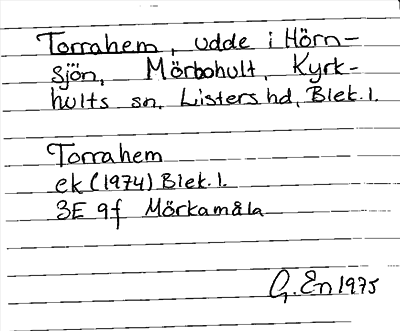 Torrahem, udde i Hörn-
sjön, Mörbohult, Kyrk-
hults sn. Listers hd, Blek. l.
Torrahem
ek (1974) Blek. l.
3E 9f Mörkamåla
G. En 1975